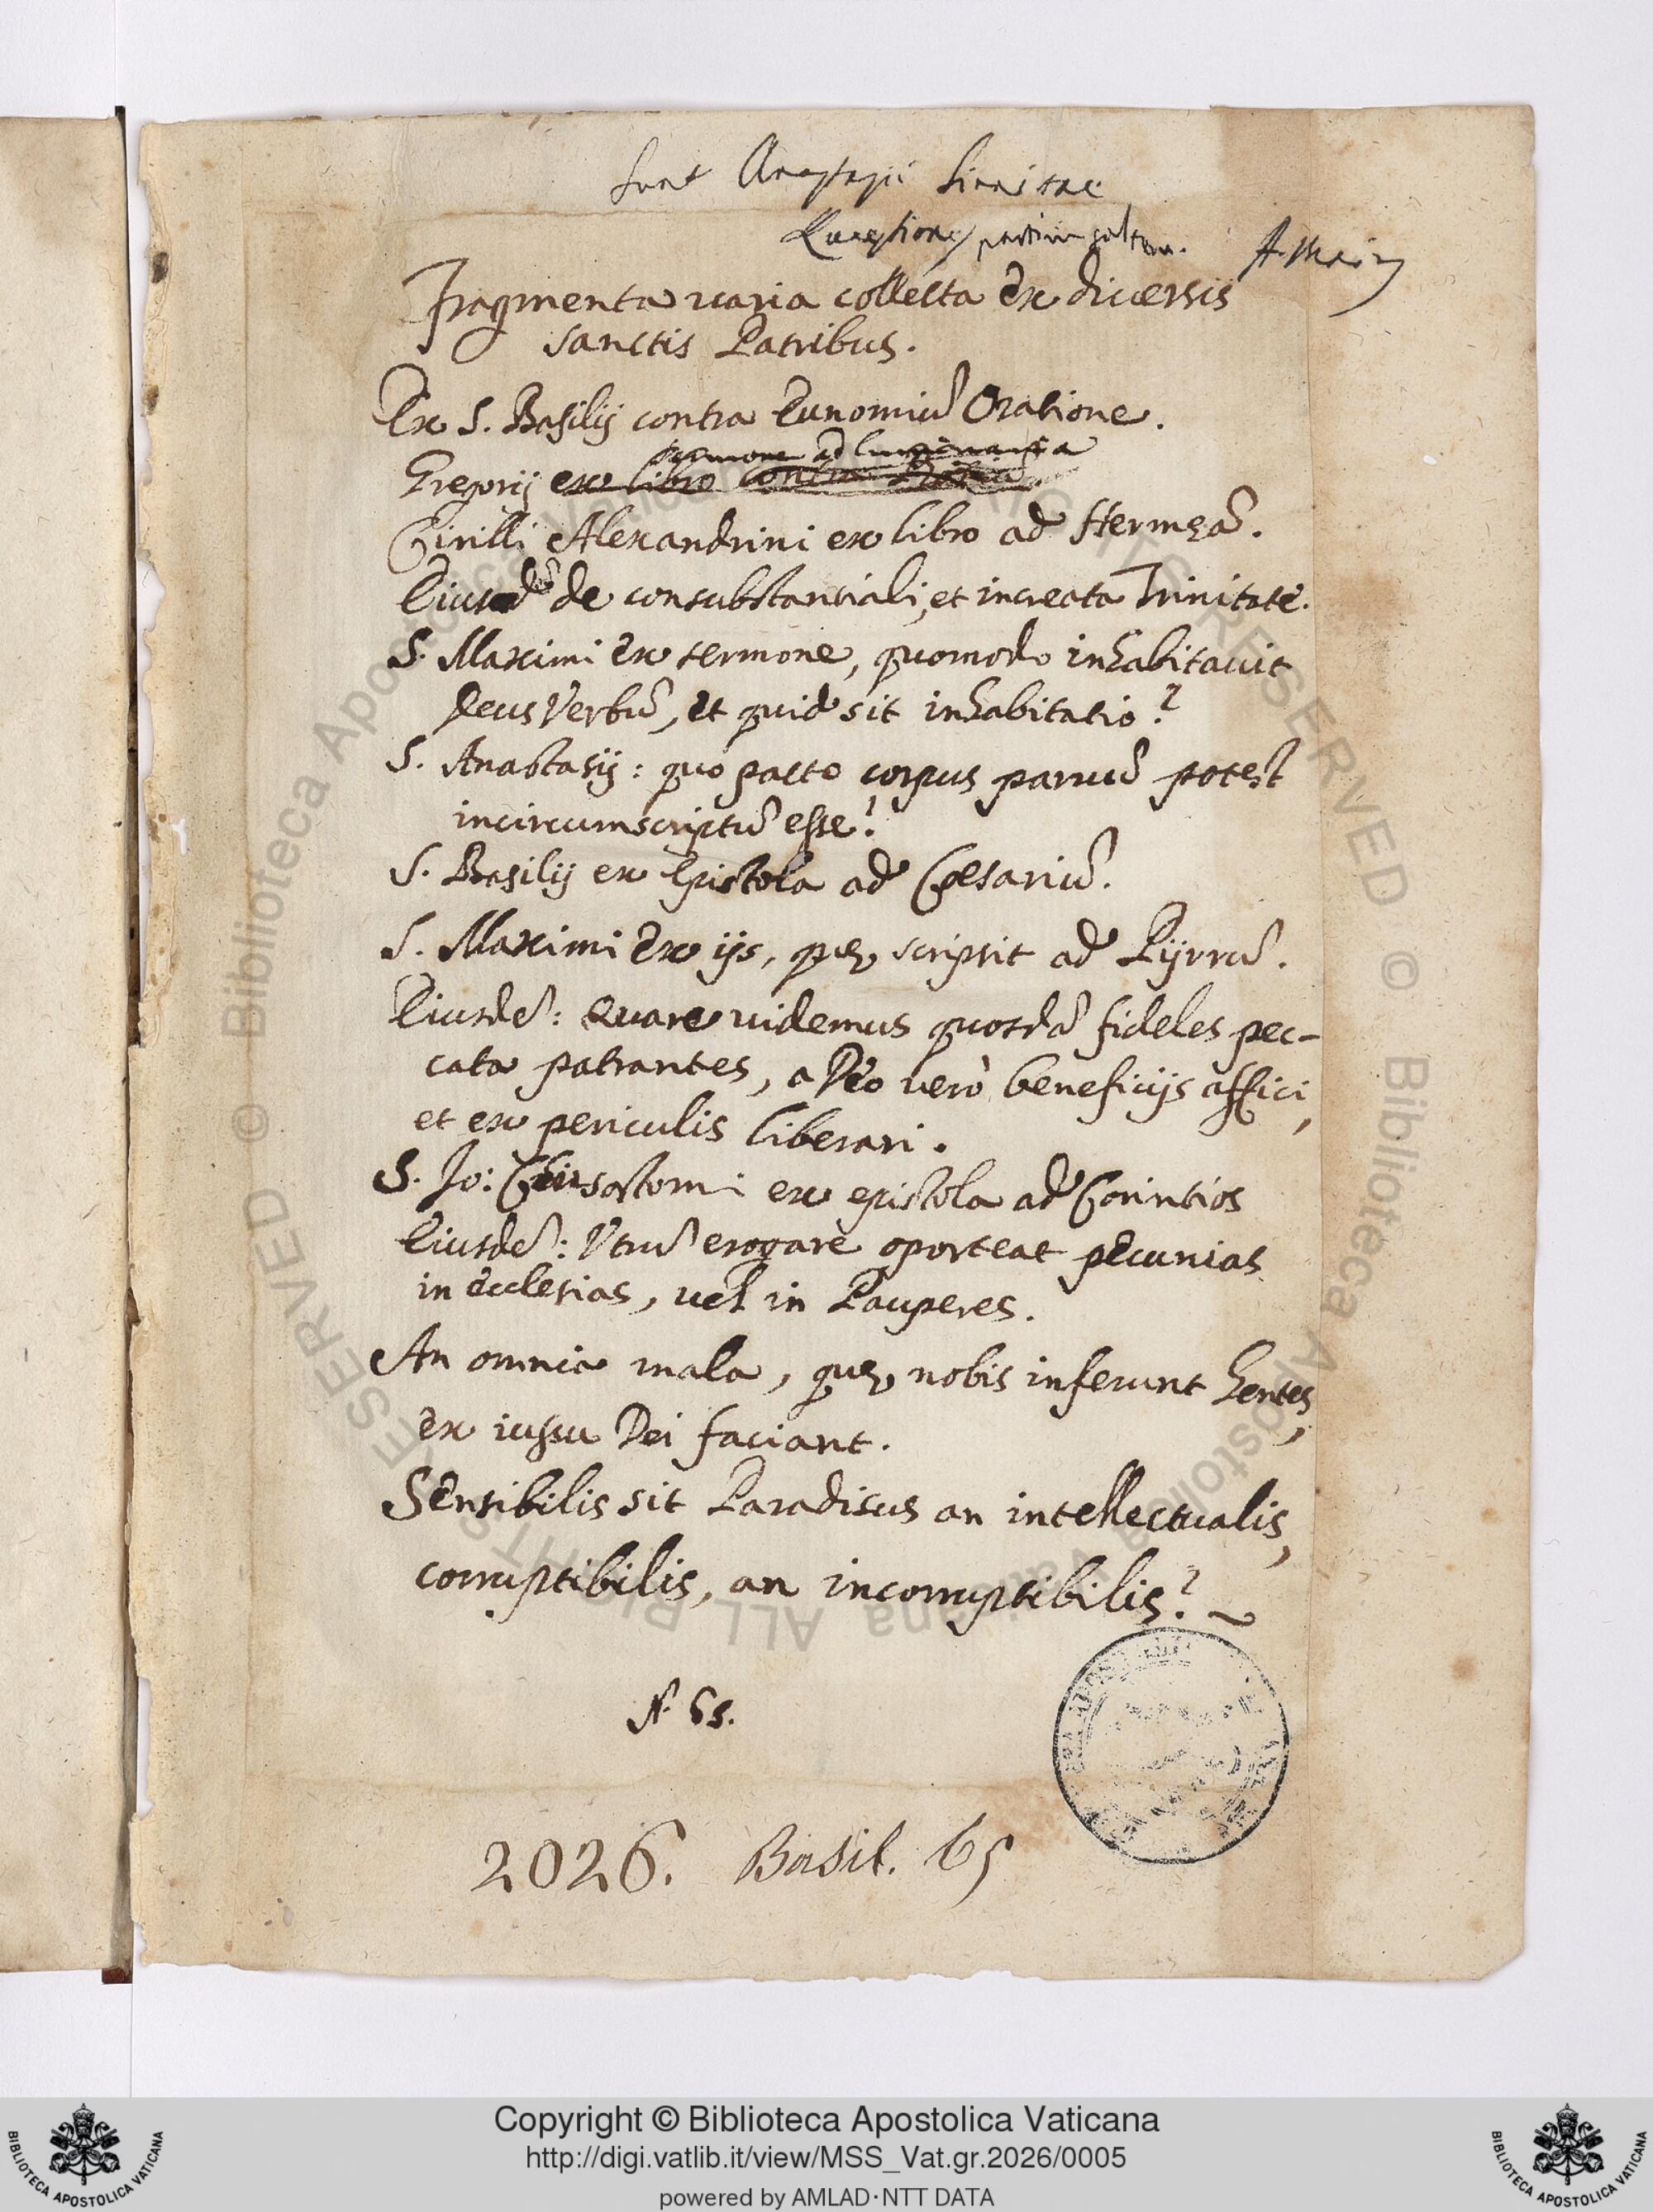 Sunt Anastasii Sinaitae
Quaestiones partim saltem. A. Maius
Fragmenta varia collecta ex diversis
sanctis Patribus.
Ex S. Basilij contra Eunomiũ Oratione.
sermone ad
Gregorij ex libro contra
Cirilli Alexandrini ex libro ad Hermeã.
Eiusdẽ de consubstantiali, et increata Trinitate.
S. Maximi ex sermone, quomodo inhabitauit
Deus Verbũ, et quid sit inhabitatio?
S. Anastasij: quo pacto corpus paruũ potest
incircumscriptũ esse?
S. Basilij ex Epistola ad Cesariũ.
S. Maximi ex ijs, quę scripsit ad Pijrrũ.
Eiusdẽ: Quare uidemus quosdã fideles pec-
cata patrantes, a Deo verò beneficijs affici,
et ex periculis liberari.
S. Jo: Chrisostomi ex epistola ad Corintios
Eiusdẽ: Vtrũ erogare oporteat pecunias
in ecclesias, uel in Pauperes.
An omnia mala, quę nobis inferunt Gentes,
ex iussu Dei faciant.
Sensibilis sit Paradisus an intellectualis,
corruptibilis, an incorruptibilis?
N. 65.
2026. Basil. 65
Copyright © Biblioteca Apostolica Vaticana
http://digi.vatlib.it/view/MSS_Vat.gr.2026/0005
powered by AMLAD·NTT DATA
BIBLIOTECA APOSTOLICA VATICANA
BIBLIOTECA APOSTOLICA VATICANA